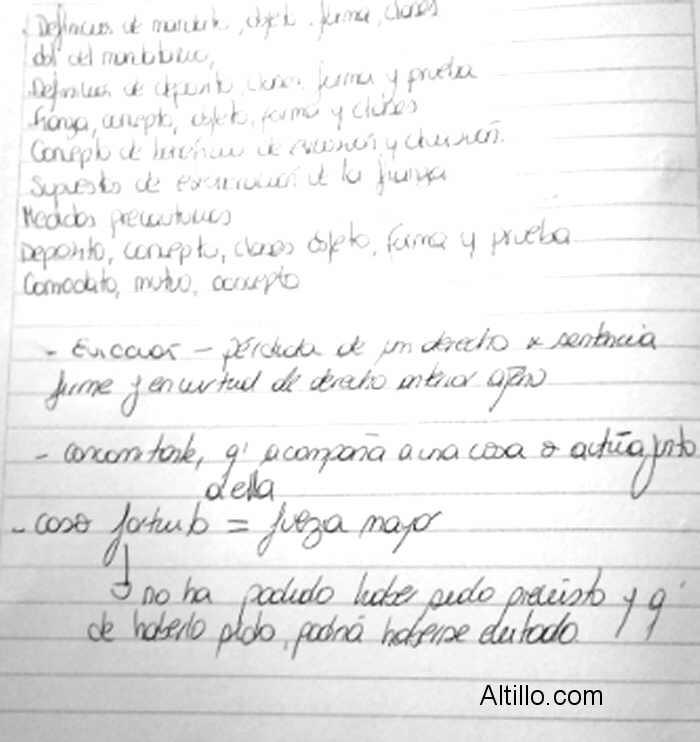 Definicion de mandato, objeto, forma, clases
del mandatario,
Definicion de deposito, clases, forma y prueba
fianza, concepto, objeto, forma y clases
Concepto de beneficio de excusion y division.
Supuestos de de la fianza
Medidas precautorias
Deposito, concepto, clases objeto, forma y prueba
Comodato, mutuo, concepto
- Eviccion - pérdida de un derecho x sentencia
firme y en virtud de derecho anterior ajeno
- concomitante, q' acompaña a una cosa o actúa junto
a ella
- caso fortuito = fuerza mayor
no ha podido haber sido previsto y q'
de haberlo sido, podría haberse evitado.
Altillo.com